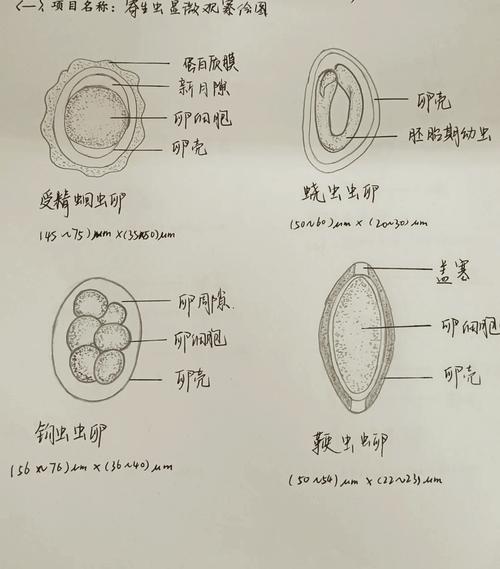 (一)、项目名称：寄生虫显微观察绘图
蛋白质膜
新月隙
卵细胞
卵壳
受精蛔虫卵
(45~75)μm×(35~50)μm
卵壳
胚胎期幼虫
蛲虫虫卵
(50~60)μm×(20~30)μm
卵周隙
卵细胞
卵壳
钩虫虫卵
(56~76)μm×(36~40)μm
盖塞
卵细胞
卵壳
鞭虫虫卵
(50~54)μm×(22~23)μm